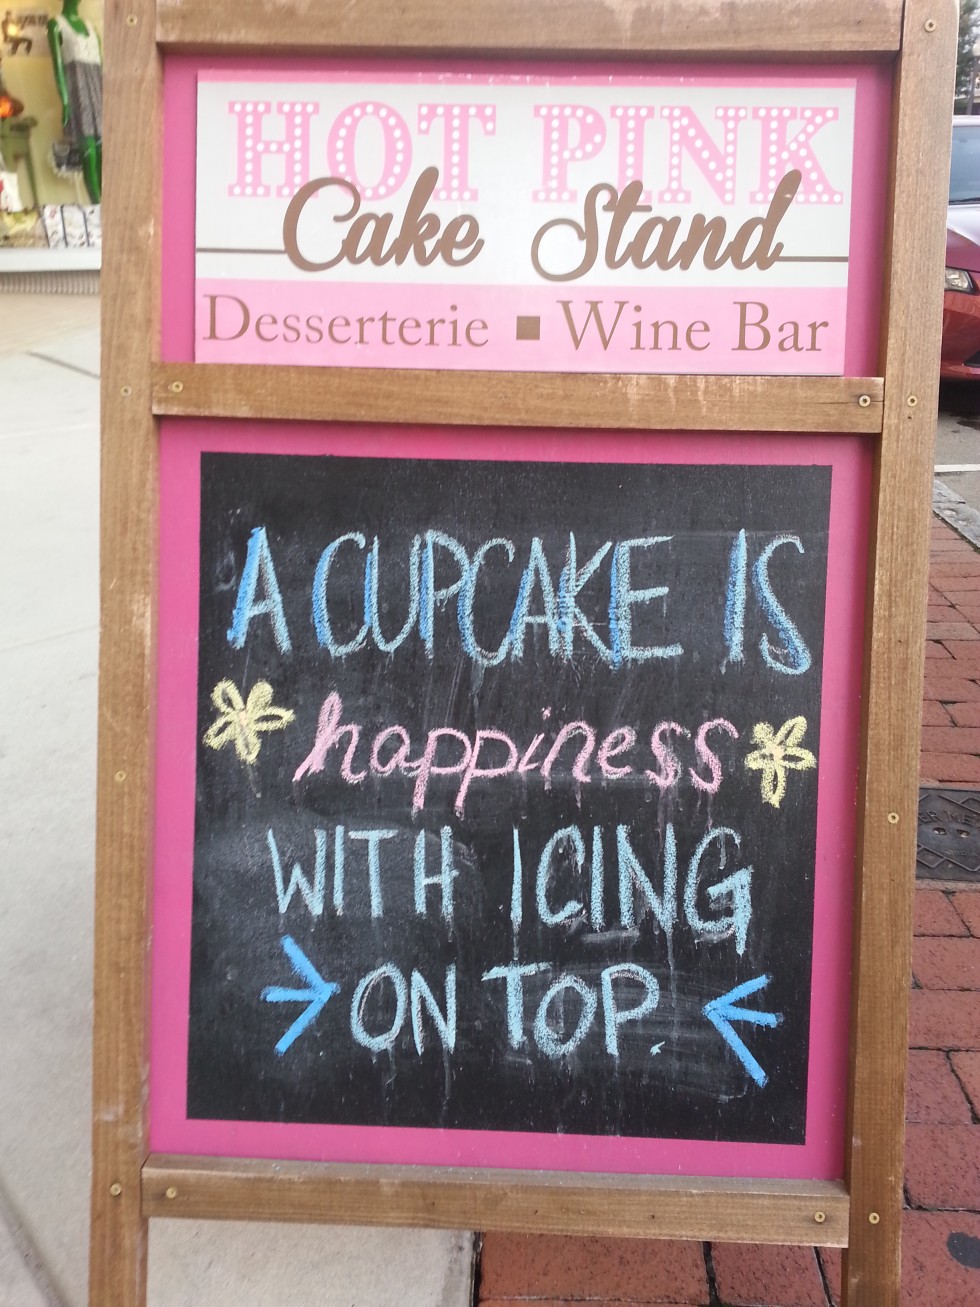 HOT PINK
Cake Stand
Desserterie ■ Wine Bar
A CUPCAKE IS
happiness
WITH ICING
ON TOP.